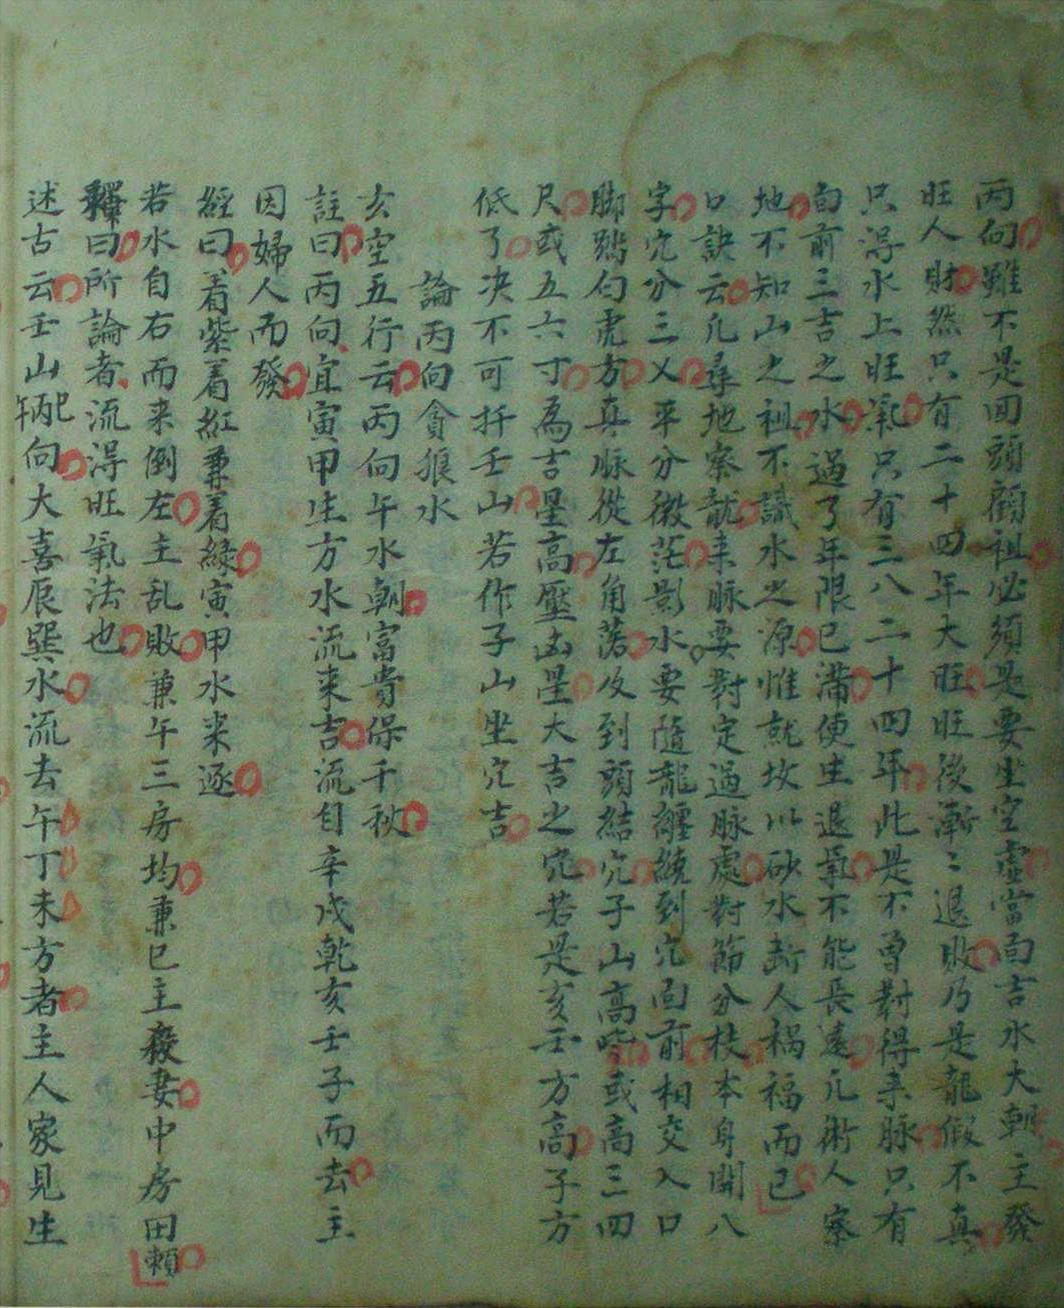 丙向雖不是回頭顧祖必須是要坐空虛當面吉水大朝主發
旺人財然只有二十四年大旺旺後漸〻退敗乃是龍假不真
只淂水上旺氣只有三八二十四年此是不曾對得来脉只有
面前三吉之水過了年限已滿使生退氣不能長遠凢術人察
地不知山之祖不識水之源惟就坟以砂水断人禍福而已
口訣云凢尋地察龍来脉要對定過脉處對節分枝本身開八
字穴分三乂平分微茫影水要隨龍纏繞到穴面前相交入口
脚踏勾虎方真脉從左角落及到頭結穴子山高些或高三四
尺或五六寸為吉星高壓凶星大吉之穴若是亥壬方高子方
低了决不可扦壬山若作子山坐穴吉
論丙向貪狼水
玄空五行云丙向午水朝富貴保千秋
註曰丙向宜寅甲生方水流来吉流自辛戌乾亥壬子而去主
因婦人而發
經曰着紫着紅兼着緑寅甲水来逐
若水自右而来倒左主乱敗兼午三房均兼巳主殺妻中房田賴
釋曰所論者流淂旺氣法也
述古云壬山丙向巳午大喜辰巽水流去午丁未方者主人家見生